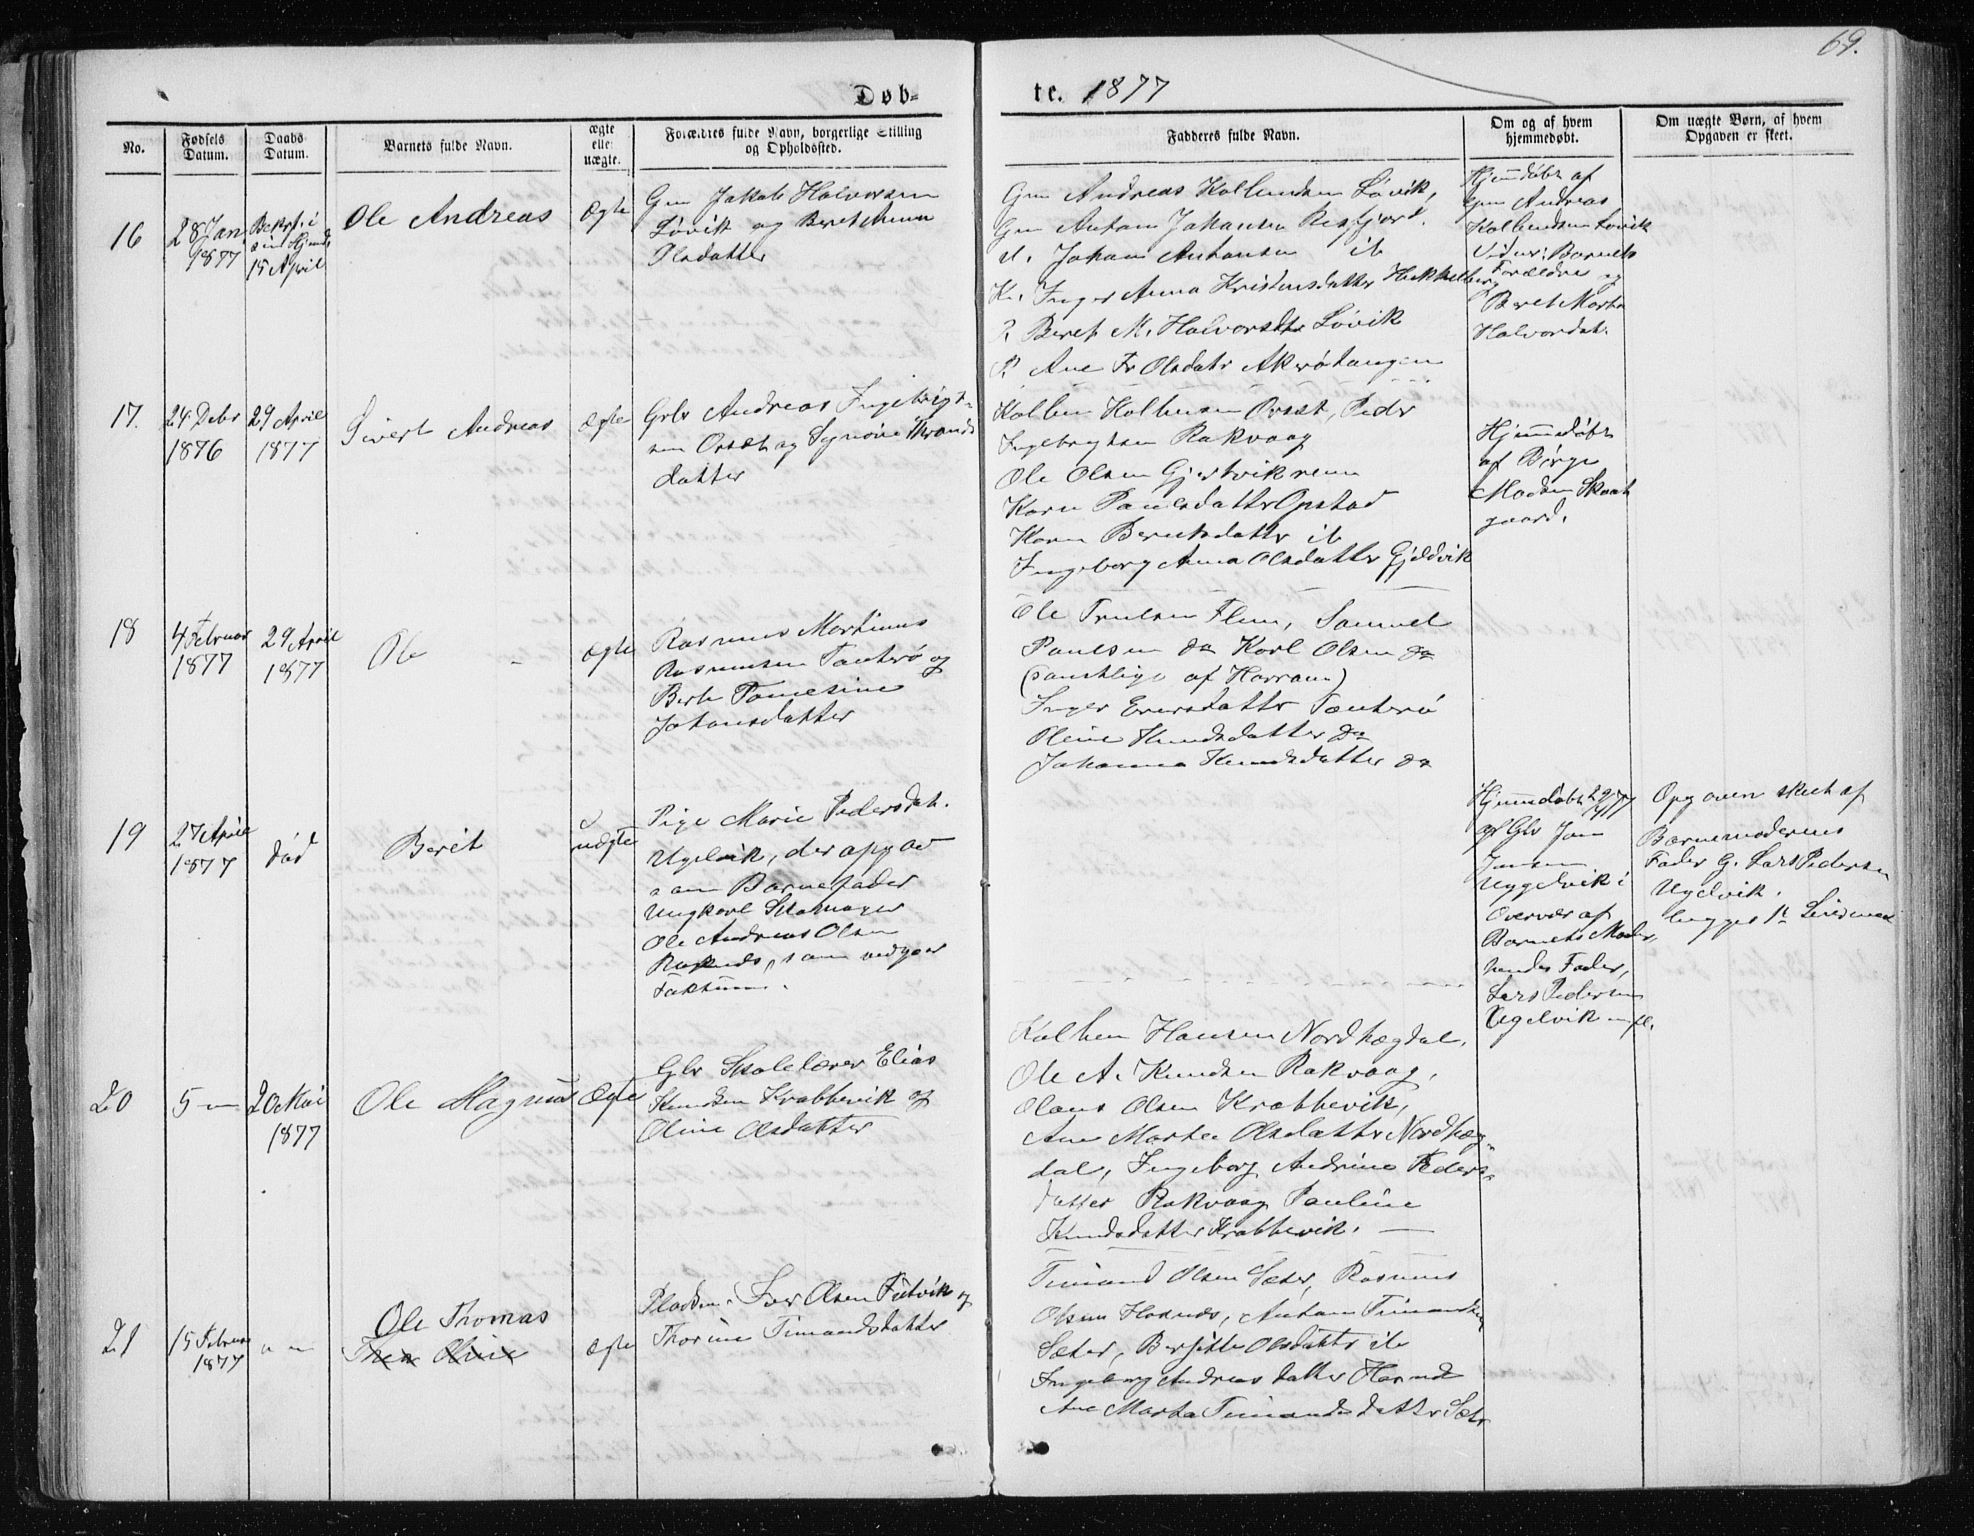 69.
Døb-
te. 1877
No.
Fødsels
Datum.
Daabs
Datum.
Barnets fulde Navn.
ægte
eller
uægte.
Forældres fulde Navn, borgerlige Stilling
og Opholdssted.
Fadderes fulde Navn.
Om og af hvem
hjemmedøbt.
Om uægte Børn, af hvem
Opgaven er skeet.
16
28 Jan
1877
15 April
Ole Andreas
Ægte
Gm Jakob Halvorsen
Løvik og Beret Anna
Olsdatter
Gm Andreas Kolbensen Løvik,
Gm Antom Johansen Resfjord.
Johan Antonsen ib
K. Inger Anna Kristensdatter
P. Beret M. Halvorsdtr Løvik
P. Ane Fr Olsdatr Akerøtangen
Hjemdøbt af
Gm Andreas
Kolbensen Løvik
Vidner: Barnets
Forældre og
Beret Marta
Halvordat.
17.
24 Debr
1876
29 April
1877
Sivert Andreas
Ægte
Grbr Andreas Ingebrigt-
sen Orset og Synøve Thronds
datter
Kolben Kolbensen Orset, Peder
Ingebrigtsen Rakvaag
Ole Olsen Gjestvikrem
Karn Paulsdatter Opstad
Karn Berntsdattr ib
Ingeborg Anna Olsdatter Gjeldvik
Hjemmedøbt
af Børge
Madsen Skaat
gaard.
18
4 Februar
1877
29 April
1877
Ole
ægte
Rasmus Martinus
Rasmussen Tauterø og
Johansdatter
Ole Trulsen Flem, Samuel
Paulsen do Karl Olsen do
(samtlige af Harram)
Inger Eversdattr Tauterø
Oline Knudsdatter do
Johanna Knudsdatter do
19
27 April
1877
død
Berit
uægte
Pige Marie Pedersdat.
Ugelvik, der opgav
som Barnefader
Ungkarl Skomager
Ole Andreas Olsen
som vedgaar
Faktum.
Hjemdøbt 29/4 77
af Gbr Jon
Jensen
Uggelvik i
Overvær af
Barnets Moder,
hendes Fader,
Lars Pedersen
Ugelvik m fl.
Opgaven skeet af
Barnemoderens
Fader G. Lars Pedersen
Ugelvik.
20
5 "
20 Mai
1877
Ole Magnus
Ægte
Gbr Skolelærer Elias
Knudsen Krabbevik og
Oline Olsdatter
Kolben Hansen Nordhægdal,
Ole A. Knudsen Rakvaag,
Olaus Olsen Krabbevik,
Ane Marta Olsdatter Nordhæg-
dal, Ingeborg Andrine Peders-
datter Rakvaag Pauline
Knudsdatter Krabbevik.
21
15 Februar
1877
" "
Ole Thomas
Thea Oline
Ægte
Pladsm. Iver Olsen Futvik og
Thorine Timandsdatter
Timand Olsen Sæter, Rasmus
Olsen Harnæs, Anton Timandsen
Sæter, Bergitte Olsdattr ib
Ingeborg Andreasdatter
Ane Marta Timandsdatter Sætr